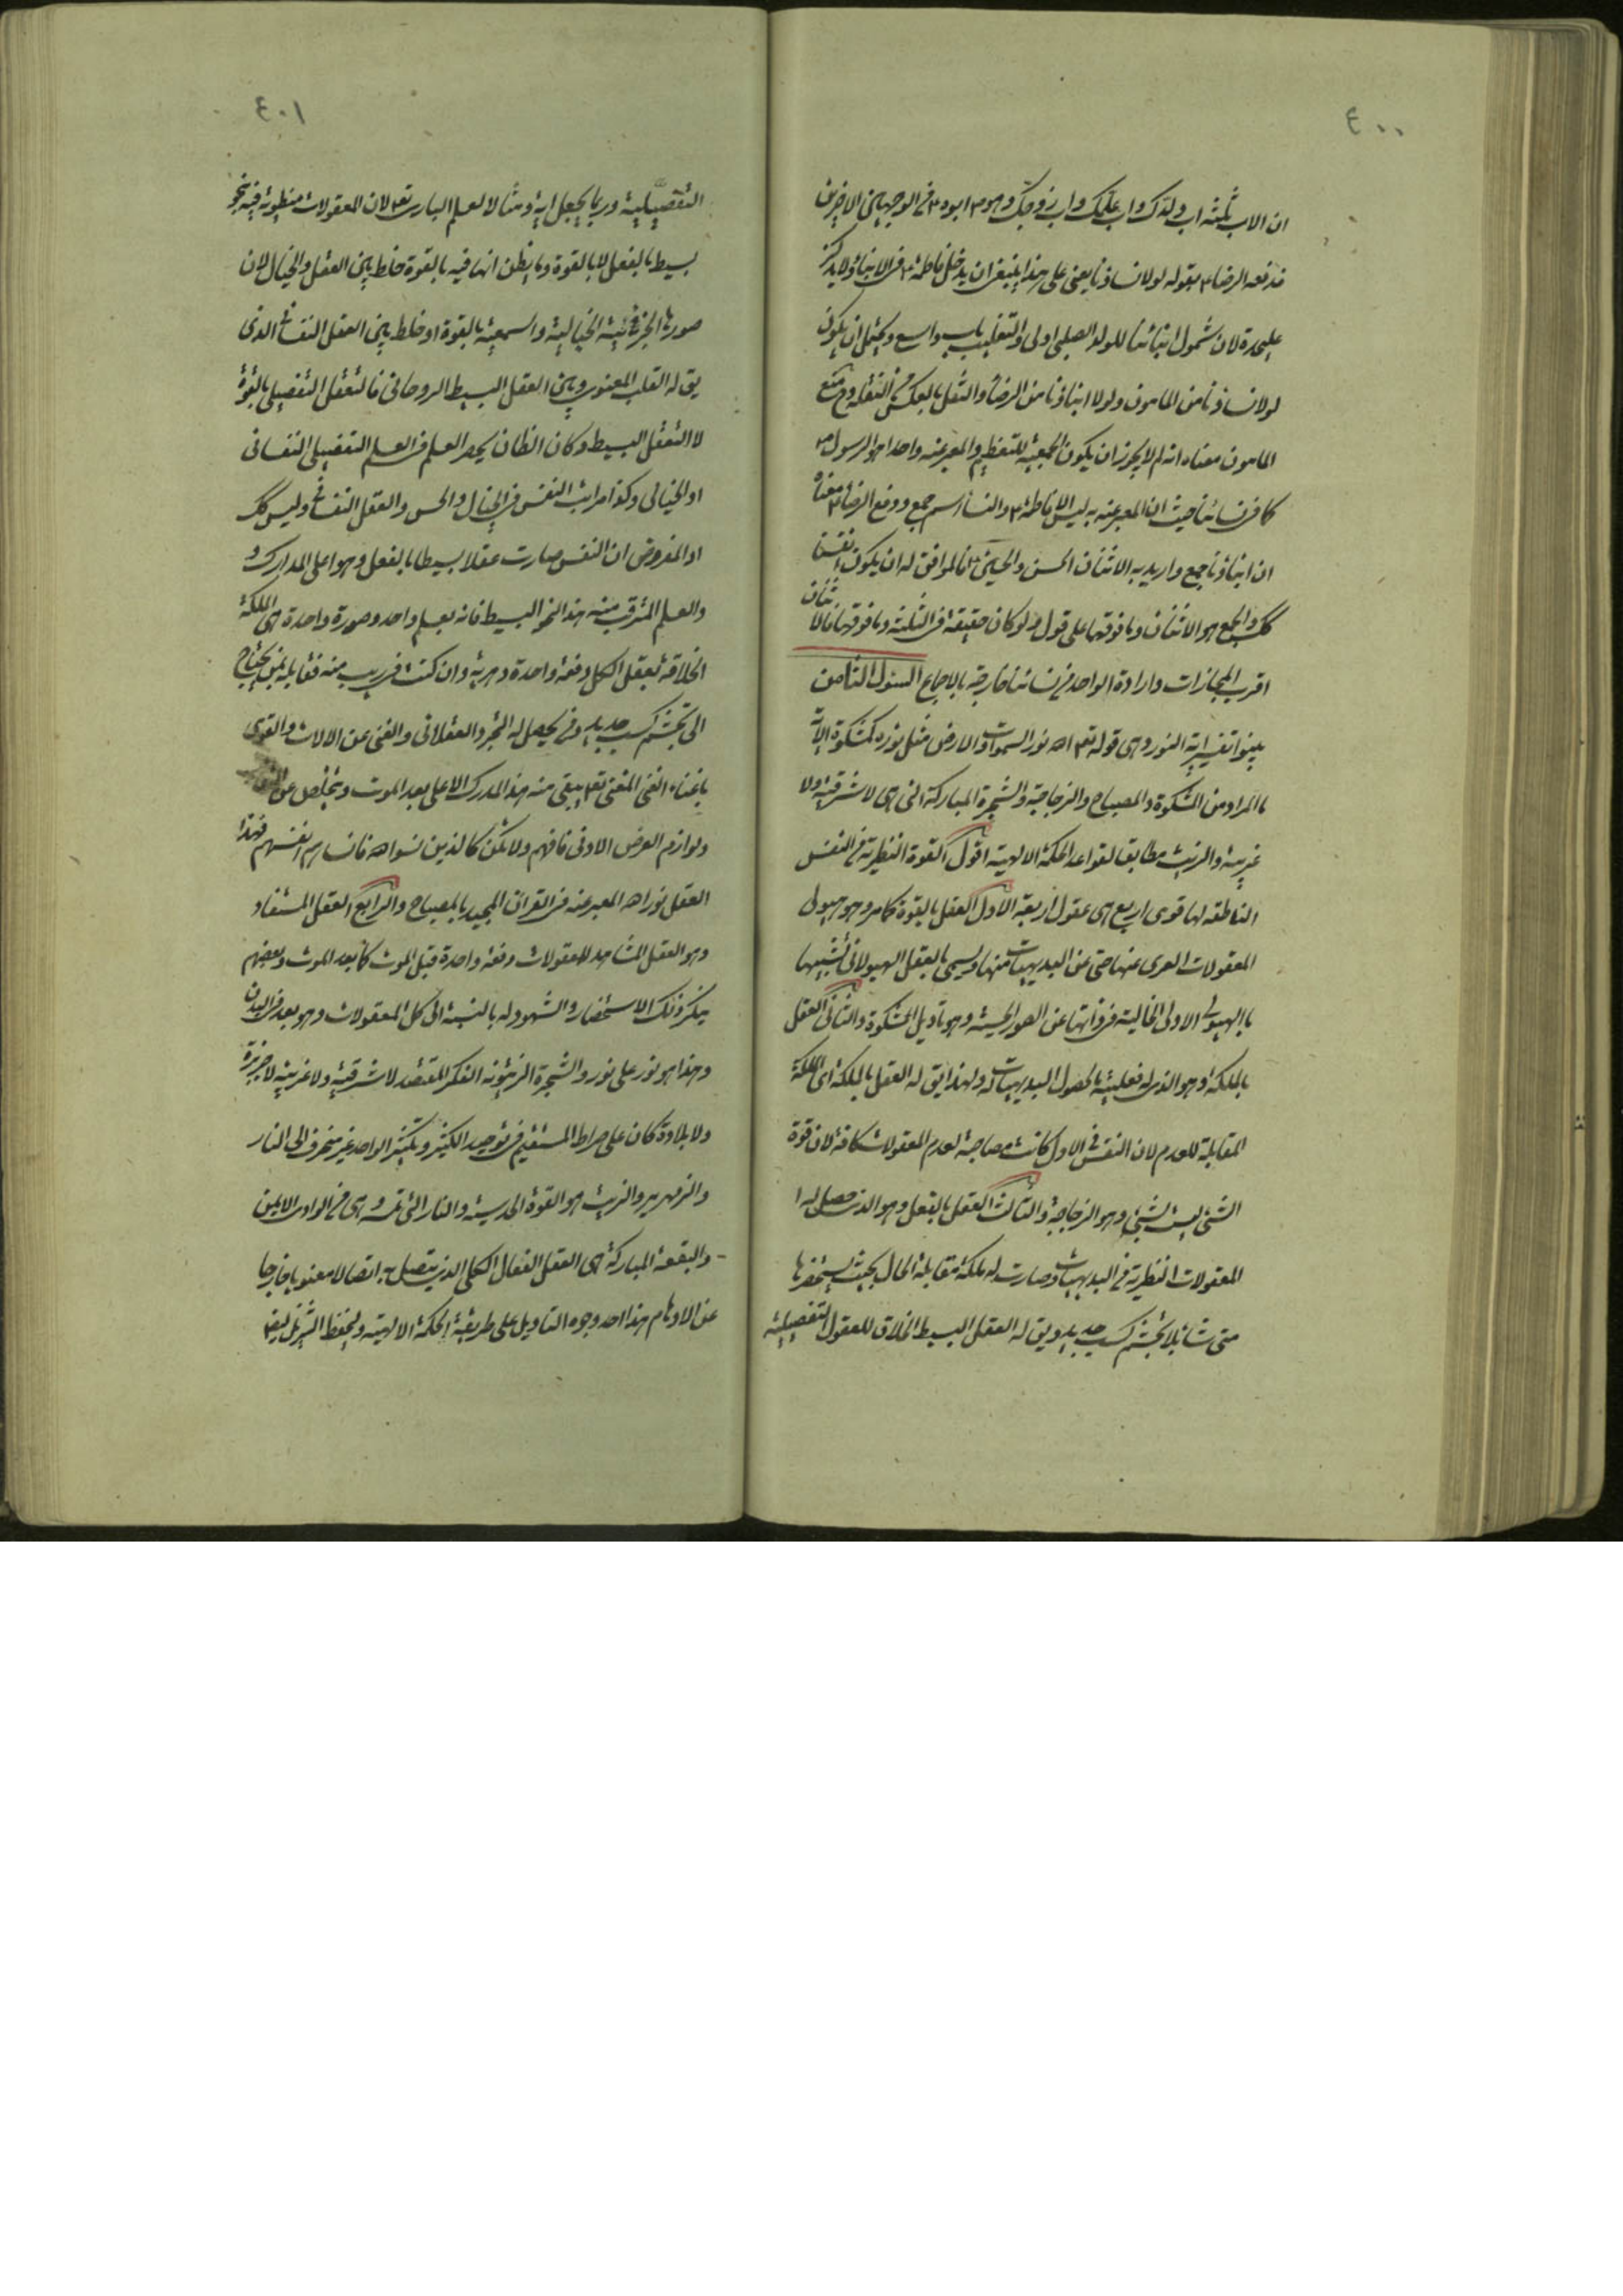 ٤٠٠
ان الاب ثلثه اب ولدك واب علمك واب زوجك وهو ابوه في الوجهين الاخرين
فدفعه الرضاء بقوله لولا نساؤنا يعنى على هذا ينبغى ان يدخل فاطمة في الابناء ولا يذكر
عليحدة لان شمول ابنائنا للولد الصلبى اولى والتغليب باب واسع ويحتمل ان يكون
لولا نساؤنا من المامون ولولا ابناؤنا من الرضا والنقل بالعكس من النقلة وح منع
المامون معناه انه لم لا يجوز ان يكون الجمعية للتعظيم والمعبر عنه واحدا هو الرسول
كما في نسائنا حيث ان المعبر عنه به ليس الا فاطمة والنساء اسم جمع ودفع الرضا معناه
ان ابناؤنا جمع واريد به الاثنان الحسن والحسين فالموافق له ان يكون انفسنا
كك والجمع هو الاثنان وما فوقهما على قول ولو كان حقيقة في الثلثة وما فوقها فالاثنان
اقرب المجازات وارادة الواحد في نسائنا خارجة بالاجماع السئول الثامن
بينوا تفسير اية النور وهى قوله تعم الله نور السموات والارض مثل نوره كمشكوة الاية
ما المراد من المشكوة والمصباح والزجاجة والشجرة المباركة التى هى لا شرقية ولا
غربية والزيت مطابقا لقواعد الحكمة الالهية اقول القوة النظرية في النفس
الناطقه لها قوى اربع هى عقول اربعة الاول العقل بالقوة كما مر وهو هيولى
المعقولات العرى عنها حتى عن البديهيات منها ويسمى بالعقل الهيولانى تشبيها
بالهيولى الاولى الخالية في ذاتها عن الصور الحسية وهو تأويل المشكوة والثانى العقل
بالملكة وهو الذى له فعلية بالحصول البديهيات له ولهذا يق له العقل بالملكة اى الملكة
المقابلة للعدم لان النفس في الاول كانت مصاحبة لعدم المعقولات كافة لان قوة
الشئ ليست الشئ وهو الزجاجة والثالث العقل بالفعل وهو الذى حصل له
المعقولات النظرية في البديهيات وصارت له ملكة مقابلة الحال بحيث يستحضرها
متى شاء بلا تجشم كسب جديد ويق له العقل البسيط الخلاق للعقول التفصيلية
٤٠١
التفصيلية وربما يجعل اية ومثالا لعلم البارى تعم لان المعقولات منطوية فيه بنحو
بسيط بالفعل لا بالقوة وما يظن انها فيه بالقوة خلط بين العقل والخيال لان
صورها الجزئية الخيالية والسمعية بالقوة او خلط بين العقل النفسانى الذى
يق له القلب المعنوى وبين العقل البسيط الروحانى فالتعقل التفصيلى بالقوة
لا التعقل البسيط وكان الظان يحصر العلم في العلم التفصيلى النفسانى
او الخيالى وكذا مراتب النفس في الخيال والحس والعقل النفسانى وليس كك
اذ المفروض ان النفس صارت عقلا بسيطا بالفعل وهو اعلى المدارك
والعلم المترقب منه هذا النحو البسيط فانه بعلم واحد وصورة واحدة هى الملكة
الخلاقة يعقل الكل دفعة واحدة دهرية وان كنت في ريب منه فقابله بمن يحتاج
الى تجشم كسب جديد ومن يحصل له التجرد العقلانى والغنى عن الالات والقوى
باغناء الغنى المغنى تعم يبقى منه هذا المدرك الاعلى بعد الموت ويتخلص عن
ولوازم العرض الادنى فافهم ولا تكن كالذين نسوا الله فانساهم انفسهم فهذا
العقل نور الله المعبر عنه في القران المجيد بالمصباح والرابع العقل المستفاد
وهو العقل المشاهد للمعقولات دفعة واحدة قبل الموت كما بعد الموت وبعضهم
ينكر ذلك الاستحضار والشهود له بالنسبة الى كل المعقولات وهو بعد في البدن
وهذا هو نور على نور والشجرة الزيتونه الفكر المقتصد لا شرقية ولا غربية لا جربزة
ولا بلادة كان على صراط المستقيم في توحيد الكثير وتكثير الواحد غير منحرف الى النار
والزمهرير والزيت هو القوة الحدسية والنار التى تمسه هى في الوادى الايمن
والبقعة المباركة هى العقل الفعال الكلى الذى يتصل به اتصالا معنويا خارجا
عن الاوهام هذا احد وجوه التاويل على طريقة الحكمة الالهية ولحفظ التنزيل ايضا